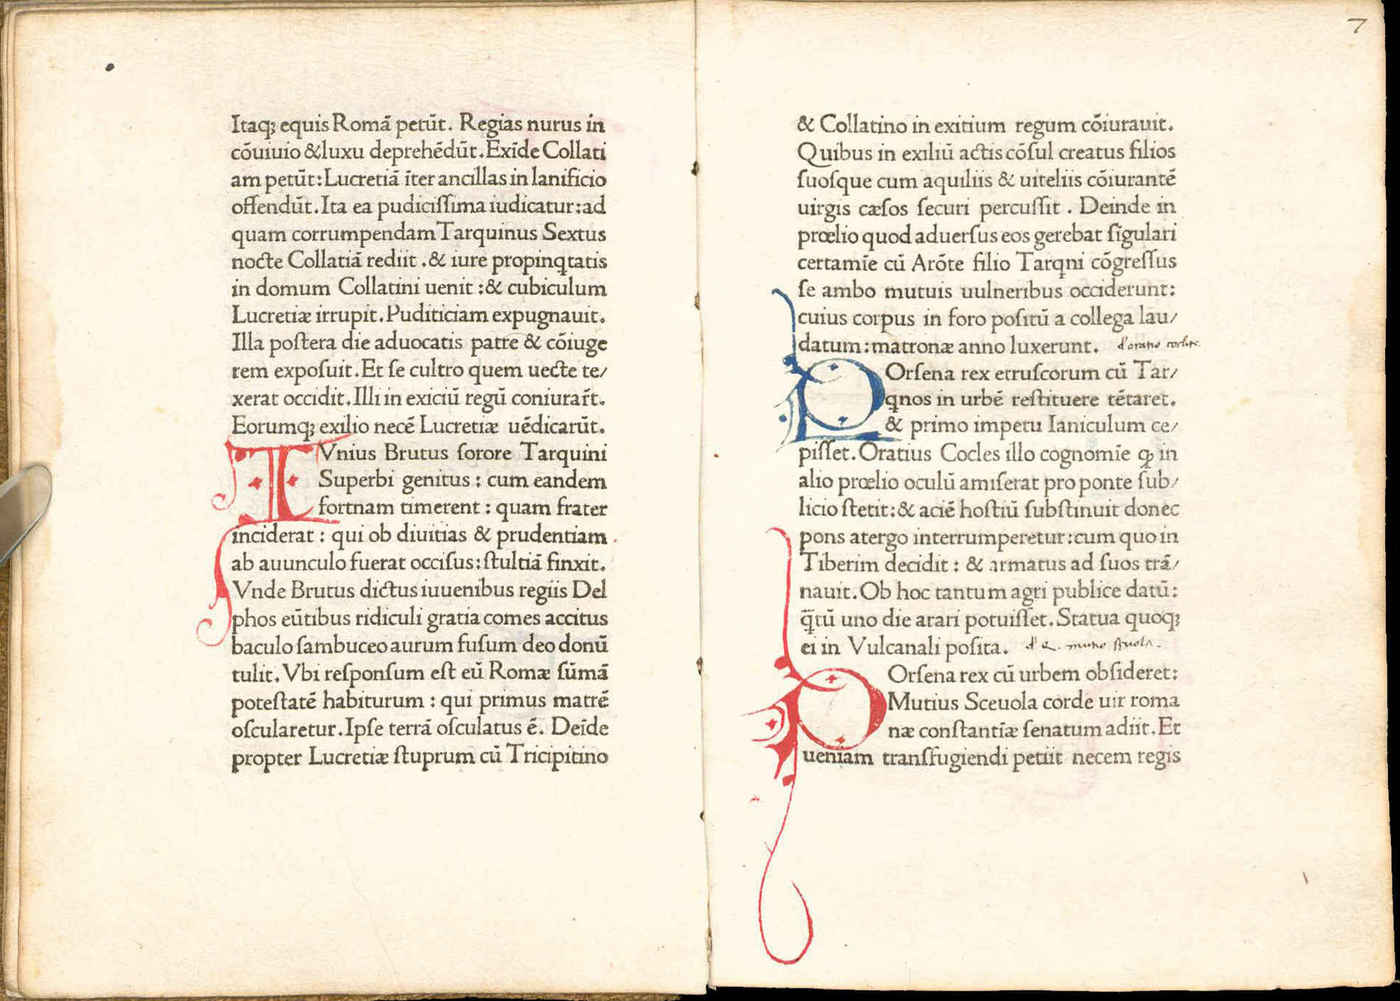 Itaqꝫ equis Romā petūt. Regias nurus in
cōuiuio &luxu deprehēdūt. Exīde Collati
am petūt: Lucretiā īter ancillas in lanificio
offendūt. Ita ea pudiciſſima iudicatur: ad
quam corrumpendam Tarquinus Sextus
nocte Collatiā rediit . & iure propinqtatis
in domum Collatini uenit : & cubiculum
Lucretiæ irrupit. Puditiciam expugnauit.
Illa poſtera die aduocatis patre & cōiuge
rem expoſuit. Et ſe cultro quem uecte te/
xerat occidit. Illi in exiciū regū coniurar̄t.
Eorumqꝫ exilio necē Lucretiæ uēdicarūt.
IVnius Brutus ſorore Tarquini
Superbi genitus : cum eandem
fortnam timerent : quam frater
inciderat : qui ob diuitias & prudentiam
ab auunculo fuerat occiſus: ſtultiā finxit.
Vnde Brutus dictus iuuenibus regiis Del
phos eūtibus ridiculi gratia comes accitus
baculo ſambuceo aurum fuſum deo donū
tulit. Vbi reſponſum eſt eū Romæ ſūmā
poteſtatē habiturum : qui primus matrē
oſcularetur. Ipſe terrā oſculatus ē. Deīde
propter Lucretiæ ſtuprum cū Tricipitino
7
& Collatino in exitium regum cōiurauit.
Quibus in exiliū actis cōſul creatus filios
ſuoſque cum aquiliis & uiteliis cōiurantē
uirgis cæſos ſecuri percuſſit . Deinde in
prœlio quod aduerſus eos gerebat ſīgulari
certamīe cū Arōte filio Tarqni cōgreſſus
ſe ambo mutuis uulneribus occiderunt:
cuius corpus in foro poſitū a collega lau/
datum: matronæ anno luxerunt.
POrſena rex etruſcorum cū Tar/
qnos in urbē reſtituere tētaret.
& primo impetu Ianiculum ce/
piſſet. Oratius Cocles illo cognomīe ꝙ in
alio prœlio oculū amiſerat pro ponte ſub/
licio ſtetit: & aciē hoſtiū ſubſtinuit donec
pons atergo interrumperetur: cum quo in
Tiberim decidit : & armatus ad ſuos trā/
nauit. Ob hoc tantum agri publice datū:
q̄tū uno die arari potuiſſet. Statua quoqꝫ
ei in Vulcanali poſita.
POrſena rex cū urbem obſideret:
Mutius Sceuola corde uir roma
næ conſtantiæ ſenatum adiit. Et
ueniam tranſfugiendi petiit necem regis